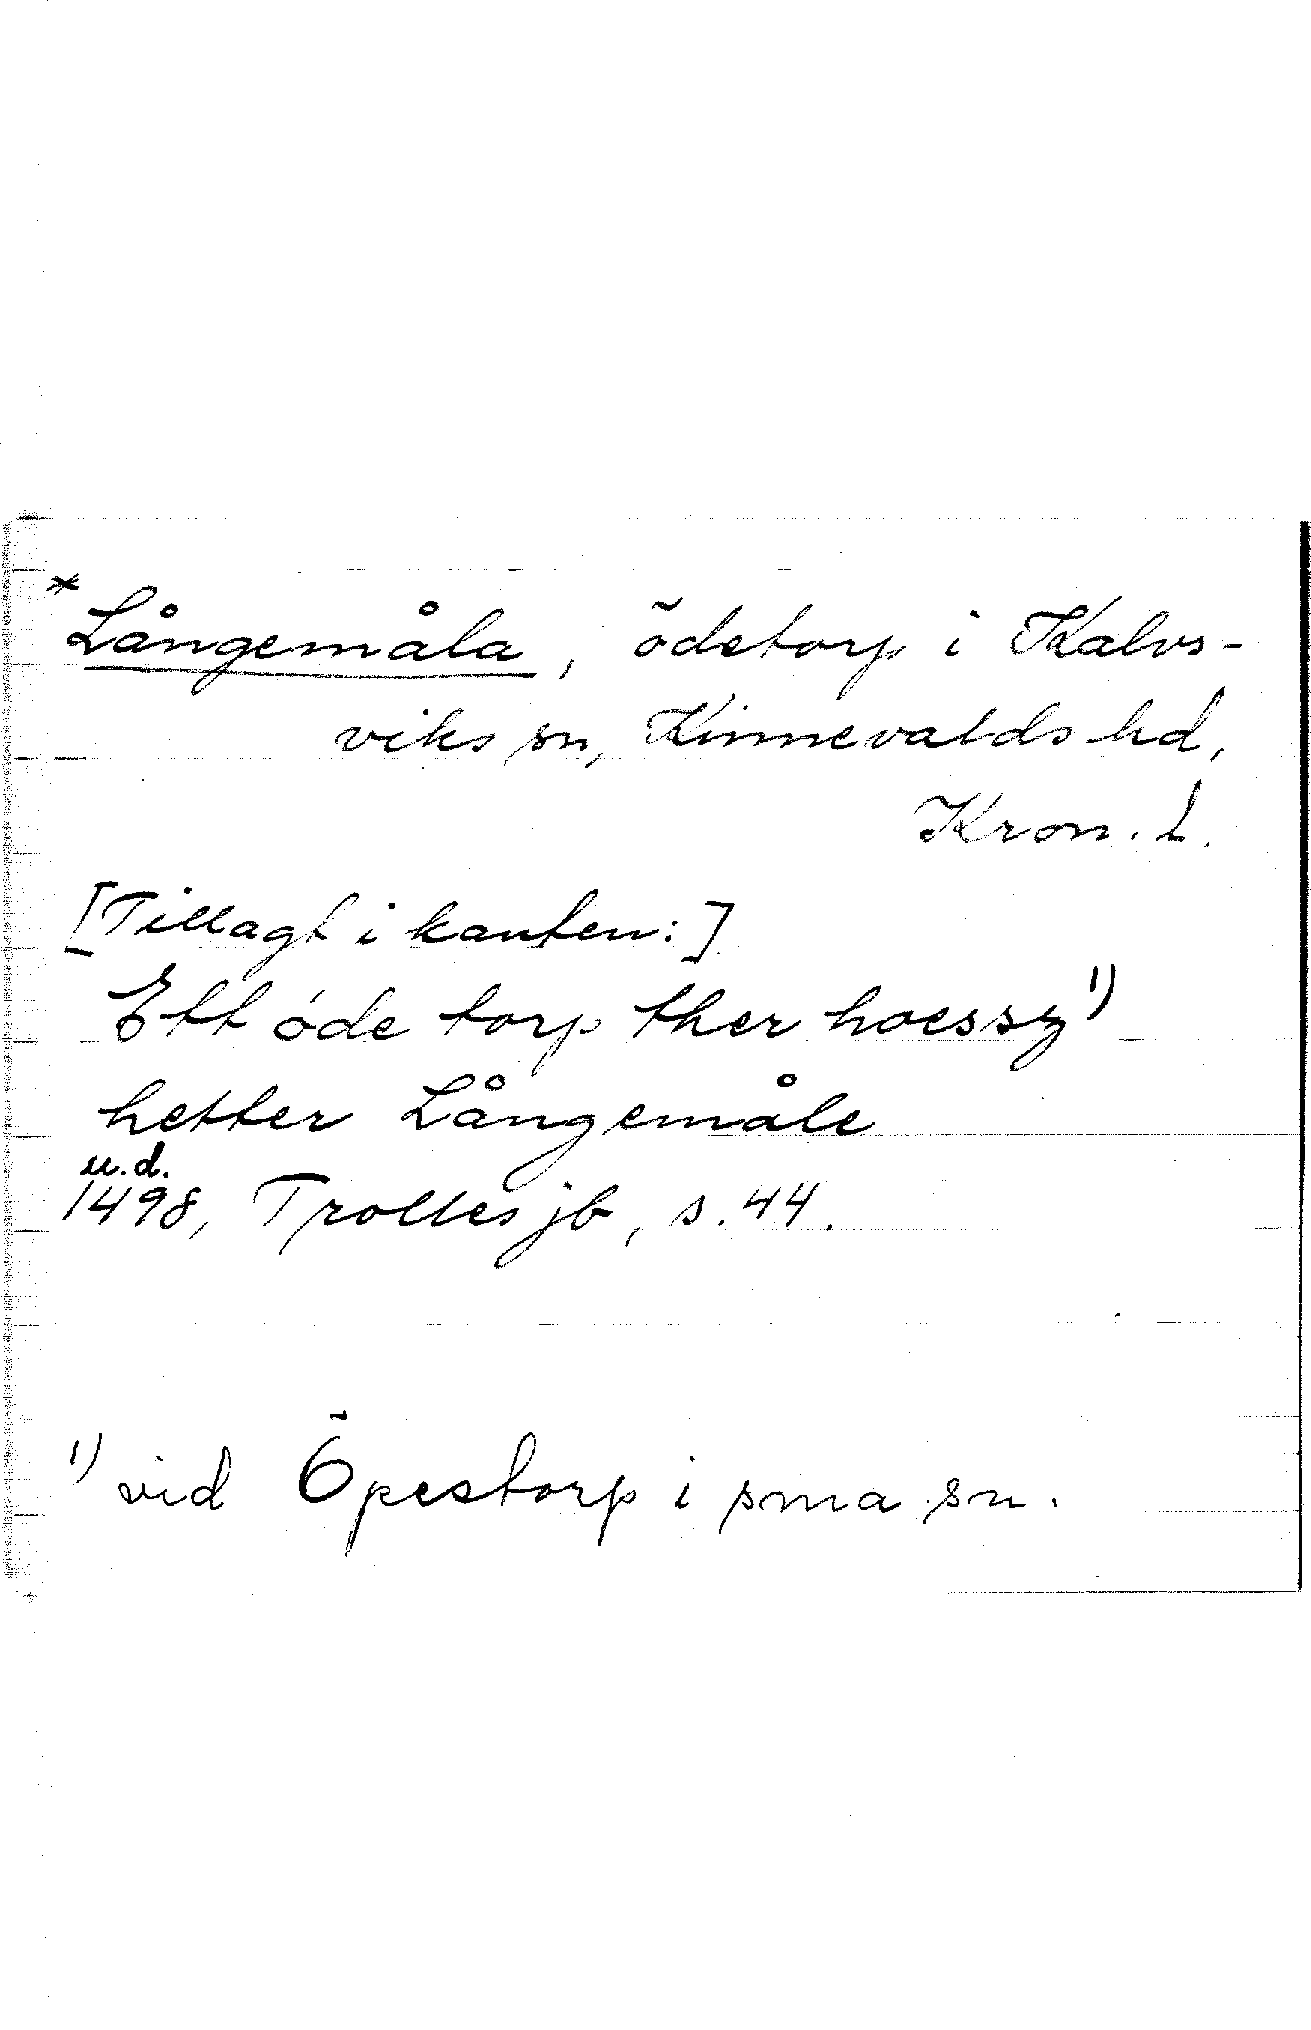 *Långemåla, ödetorp i Kalvs-
viks sn, Kinnevalds hd,
Kron. l.
[Tillagt i kanten:]
Ett óde torp ther hoessz 1)
hetter Långemåle
u.d.
1498, Trolles jb, s. 44.
1) vid Öpestorp i sma sn.